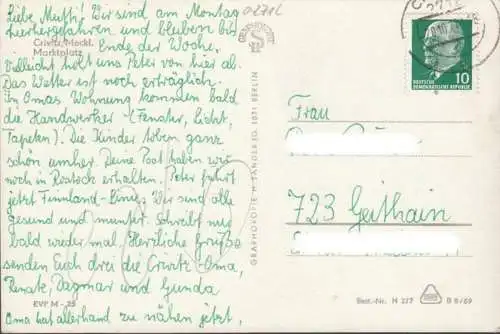 Liebe Mutti! Wir sind am Montag
hierhergefahren und bleiben bis
Crivitz/Meckl.
Marktplatz
Ende der Woche,
vielleicht holt uns Peter von hier ab.
Das Wetter ist noch erträglich.
In Omas Wohnung kommen bald
die Handwerker (Fenster, Licht,
Tapeten). Die Kinder toben ganz
schön umher. Deine Post haben wir
noch in Rostock erhalten. Peter fährt
jetzt Finnland-Linie. Wir sind alle
gesund und munter. Schreib mal
bald wieder mal. Herzliche Grüße
senden Euch drei die Crivitz-Oma,
Renate, Dagmar und Gunda
EVP M -,25
Oma hat allerhand zu nähen jetzt,
0271L
GRAPHOKOPIE H. SANDER KG, 1071 BERLIN
10
DEUTSCHE
DEMOKRATISCHE REPUBLIK
Frau
723 Geithain
Best.-Nr. H 227
B 8/69